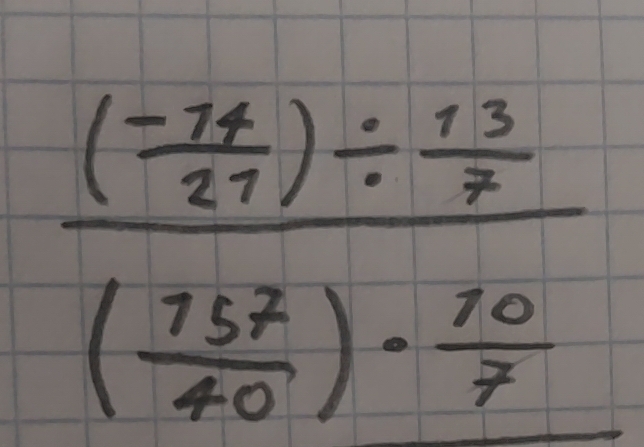 (-14/21) ÷ 13/7
(157/40) · 10/7